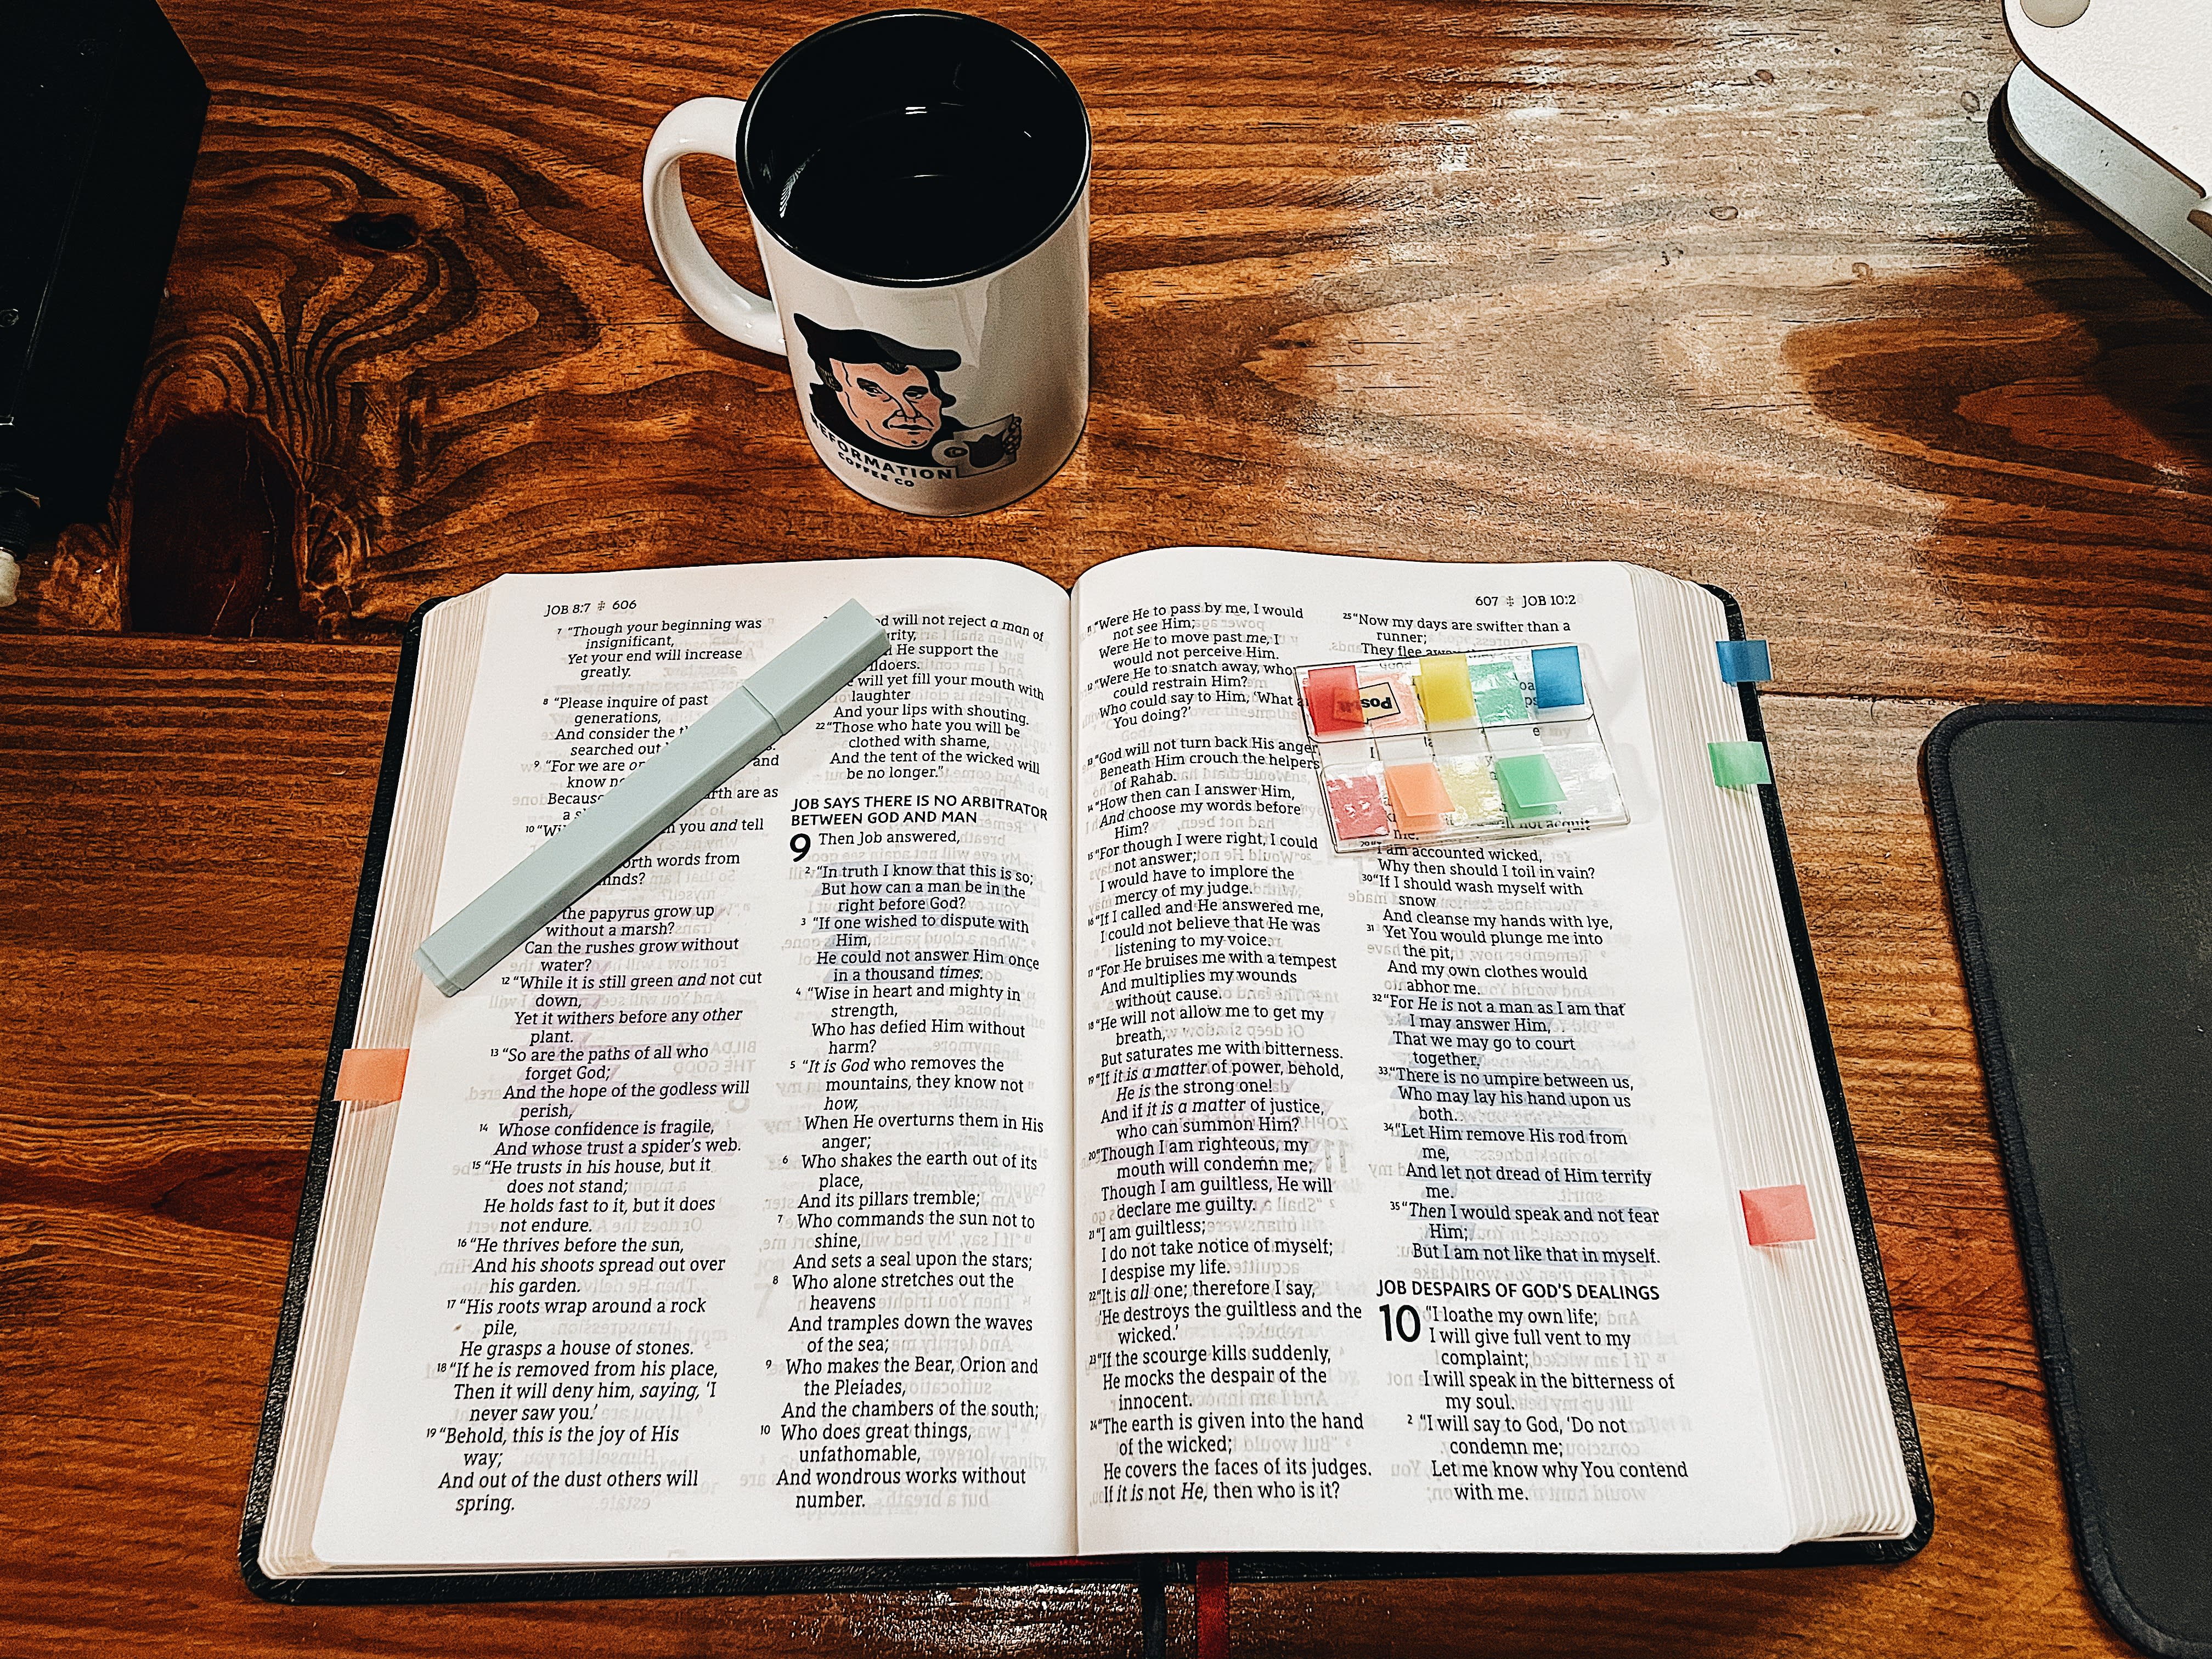 REFORMATION
COFFEE CO
JOB 8:7 ‡ 606
7 “Though your beginning was
insignificant,
Yet your end will increase
greatly.
8 “Please inquire of past
generations,
And consider the
searched out
9 “For we are and
know
Because earth are as
a
10 “Will you and tell
forth words from
minds?
the papyrus grow up
without a marsh?
Can the rushes grow without
water?
12 “While it is still green and not cut
down,
Yet it withers before any other
plant.
13 “So are the paths of all who
forget God;
And the hope of the godless will
perish,
14 Whose confidence is fragile,
And whose trust a spider’s web.
15 “He trusts in his house, but it
does not stand;
He holds fast to it, but it does
not endure.
16 “He thrives before the sun,
And his shoots spread out over
his garden.
17 “His roots wrap around a rock
pile,
He grasps a house of stones.
18 “If he is removed from his place,
Then it will deny him, saying, ‘I
never saw you.’
19 “Behold, this is the joy of His
way;
And out of the dust others will
spring.
will not reject a man of
He support the
will yet fill your mouth with
laughter
And your lips with shouting.
22 “Those who hate you will be
clothed with shame,
And the tent of the wicked will
be no longer.”
JOB SAYS THERE IS NO ARBITRATOR
BETWEEN GOD AND MAN
9 Then Job answered,
2 “In truth I know that this is so;
But how can a man be in the
right before God?
3 “If one wished to dispute with
Him,
He could not answer Him once
in a thousand times.
4 “Wise in heart and mighty in
strength,
Who has defied Him without
harm?
5 “It is God who removes the
mountains, they know not
how,
When He overturns them in His
anger;
6 Who shakes the earth out of its
place,
And its pillars tremble;
7 Who commands the sun not to
shine,
And sets a seal upon the stars;
8 Who alone stretches out the
heavens
And tramples down the waves
of the sea;
9 Who makes the Bear, Orion and
the Pleiades,
And the chambers of the south;
10 Who does great things,
unfathomable,
And wondrous works without
number.
607 ‡ JOB 10:2
11 “Were He to pass by me, I would
not see Him;
Were He to move past me, I
would not perceive Him.
12 “Were He to snatch away, who
could restrain Him?
Who could say to Him, ‘What
You doing?’
13 “God will not turn back His anger
Beneath Him crouch the helpers
of Rahab.
14 “How then can I answer Him,
And choose my words before
Him?
15 “For though I were right, I could
not answer;
I would have to implore the
mercy of my judge.
16 “If I called and He answered me,
I could not believe that He was
listening to my voice.
17 “For He bruises me with a tempest
And multiplies my wounds
without cause.
18 “He will not allow me to get my
breath,
But saturates me with bitterness.
19 “If it is a matter of power, behold,
He is the strong one!
And if it is a matter of justice,
who can summon Him?
20 “Though I am righteous, my
mouth will condemn me;
Though I am guiltless, He will
declare me guilty.
21 “I am guiltless;
I do not take notice of myself;
I despise my life.
22 “It is all one; therefore I say,
‘He destroys the guiltless and the
wicked.’
23 “If the scourge kills suddenly,
He mocks the despair of the
innocent.
24 “The earth is given into the hand
of the wicked;
He covers the faces of its judges.
If it is not He, then who is it?
25 “Now my days are swifter than a
runner;
They flee away,
Post-it
will not acquit
me.
I am accounted wicked,
Why then should I toil in vain?
30 “If I should wash myself with
snow
And cleanse my hands with lye,
31 Yet You would plunge me into
the pit,
And my own clothes would
abhor me.
32 “For He is not a man as I am that
I may answer Him,
That we may go to court
together.
33 “There is no umpire between us,
Who may lay his hand upon us
both.
34 “Let Him remove His rod from
me,
And let not dread of Him terrify
me.
35 “Then I would speak and not fear
Him;
But I am not like that in myself.
JOB DESPAIRS OF GOD’S DEALINGS
10 “I loathe my own life;
I will give full vent to my
complaint;
I will speak in the bitterness of
my soul.
2 “I will say to God, ‘Do not
condemn me;
Let me know why You contend
with me.